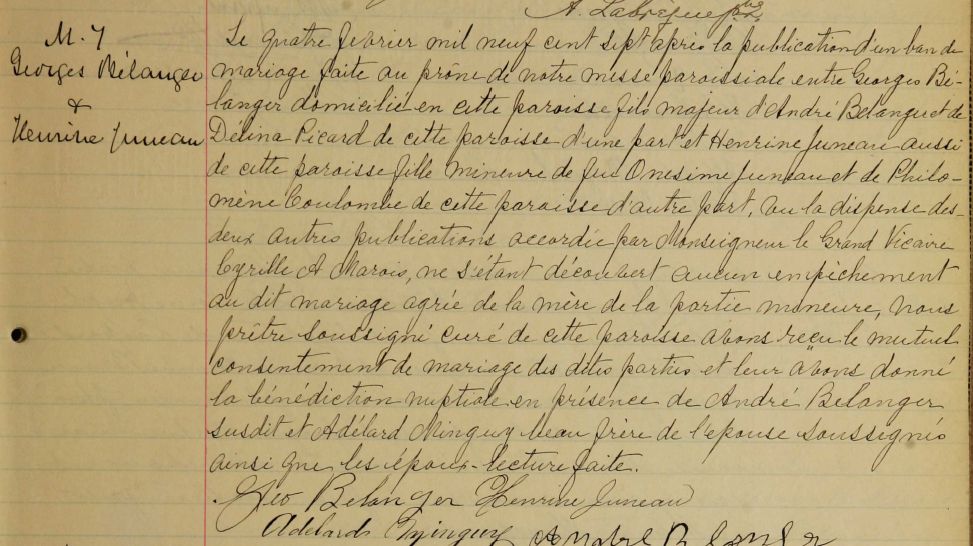 A. Labrecque ptre
M. 7
Georges Bélanger
&
Henrine Juneau
Le quatre fevrier mil neuf cent sept après la publication d'un ban de
mariage faite au prône de notre messe paroissiale entre Georges Bé-
langer domicilié en cette paroisse fils majeur d'André Belanger et de
Délina Picard de cette paroisse d'une part et Henrine Juneau aussi
de cette paroisse fille mineure de feu Onesime Juneau et de Philo-
mène Coulombe de cette paroisse d'autre part, vu la dispense des
deux autres publications accordée par Monseigneur le Grand Vicaire
Cyrille A Marois, ne s'étant découvert aucun empêchement
au dit mariage agrée de la mère de la partie mineure, nous
prêtre soussigné curé de cette paroisse avons reçu le mutuel
consentement de mariage des dites parties et leur avons donné
la bénédiction nuptiale en présence de André Belanger
susdit et Adélard Minguy beau frère de l'epouse soussignés
ainsi que les époux - lecture faite.
Geo Belanger Henrine Juneau
Adelard Minguy André Belanger